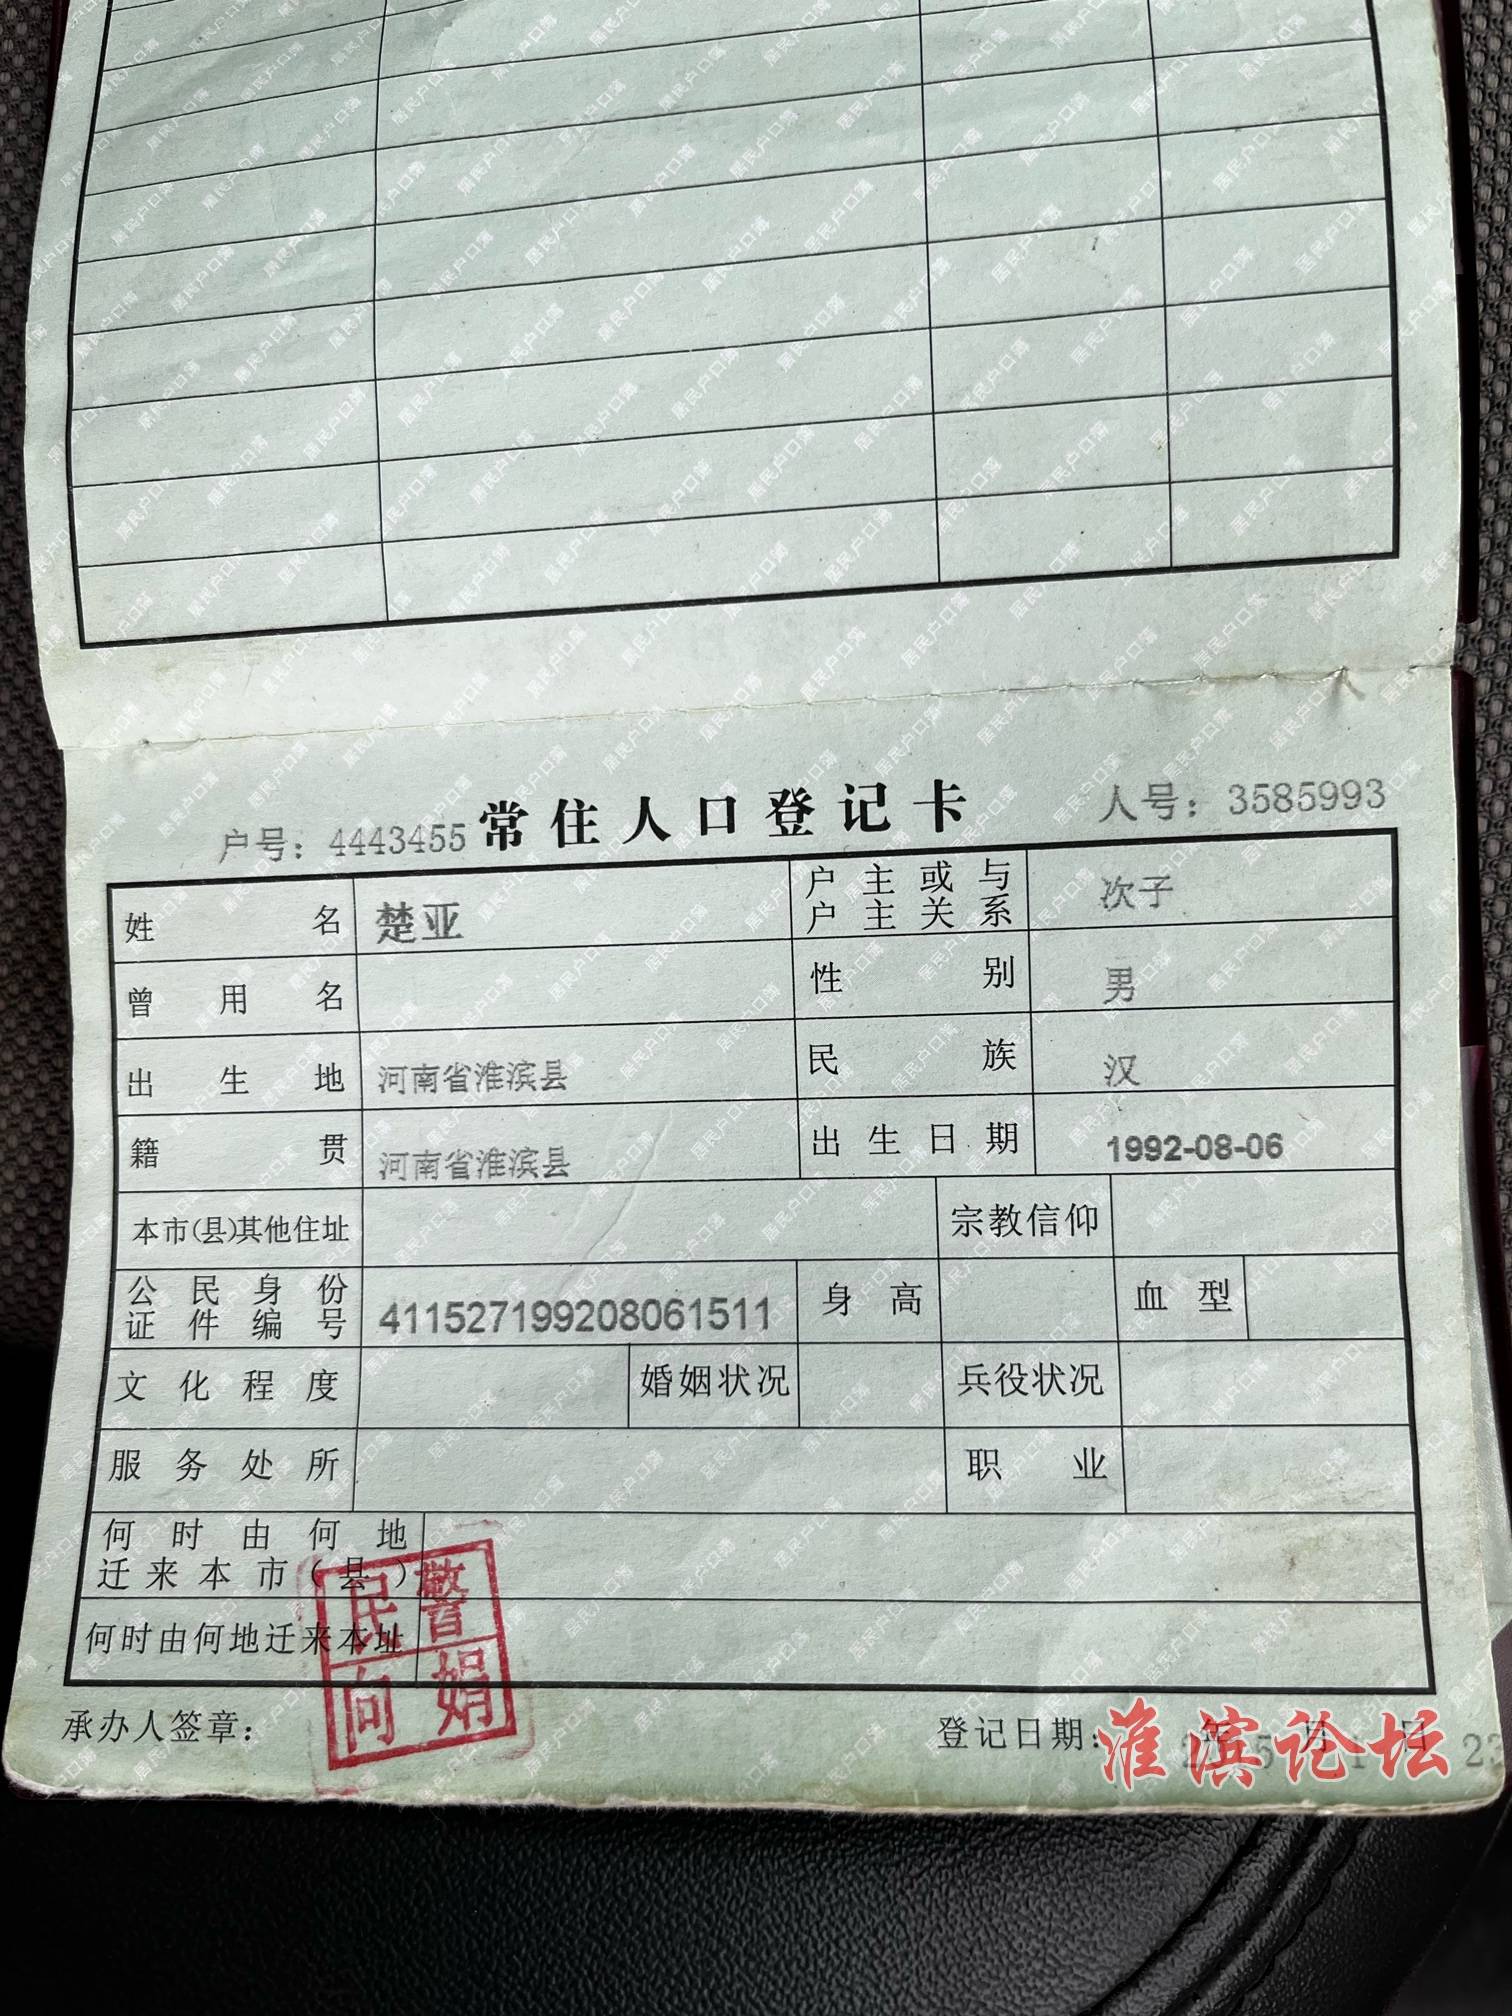 户号：4443455 常住人口登记卡 人号：3585993
姓名 楚亚 户主或与户主关系 次子
曾用名 性别 男
出生地 河南省淮滨县 民族 汉
籍贯 河南省淮滨县 出生日期 1992-08-06
本市(县)其他住址 宗教信仰
公民身份证件编号 411527199208061511 身高 血型
文化程度 婚姻状况 兵役状况
服务处所 职业
何时由何地迁来本市(县)
何时由何地迁来本址
民警
向娟
承办人签章： 登记日期： 年 月 日 23
淮滨论坛